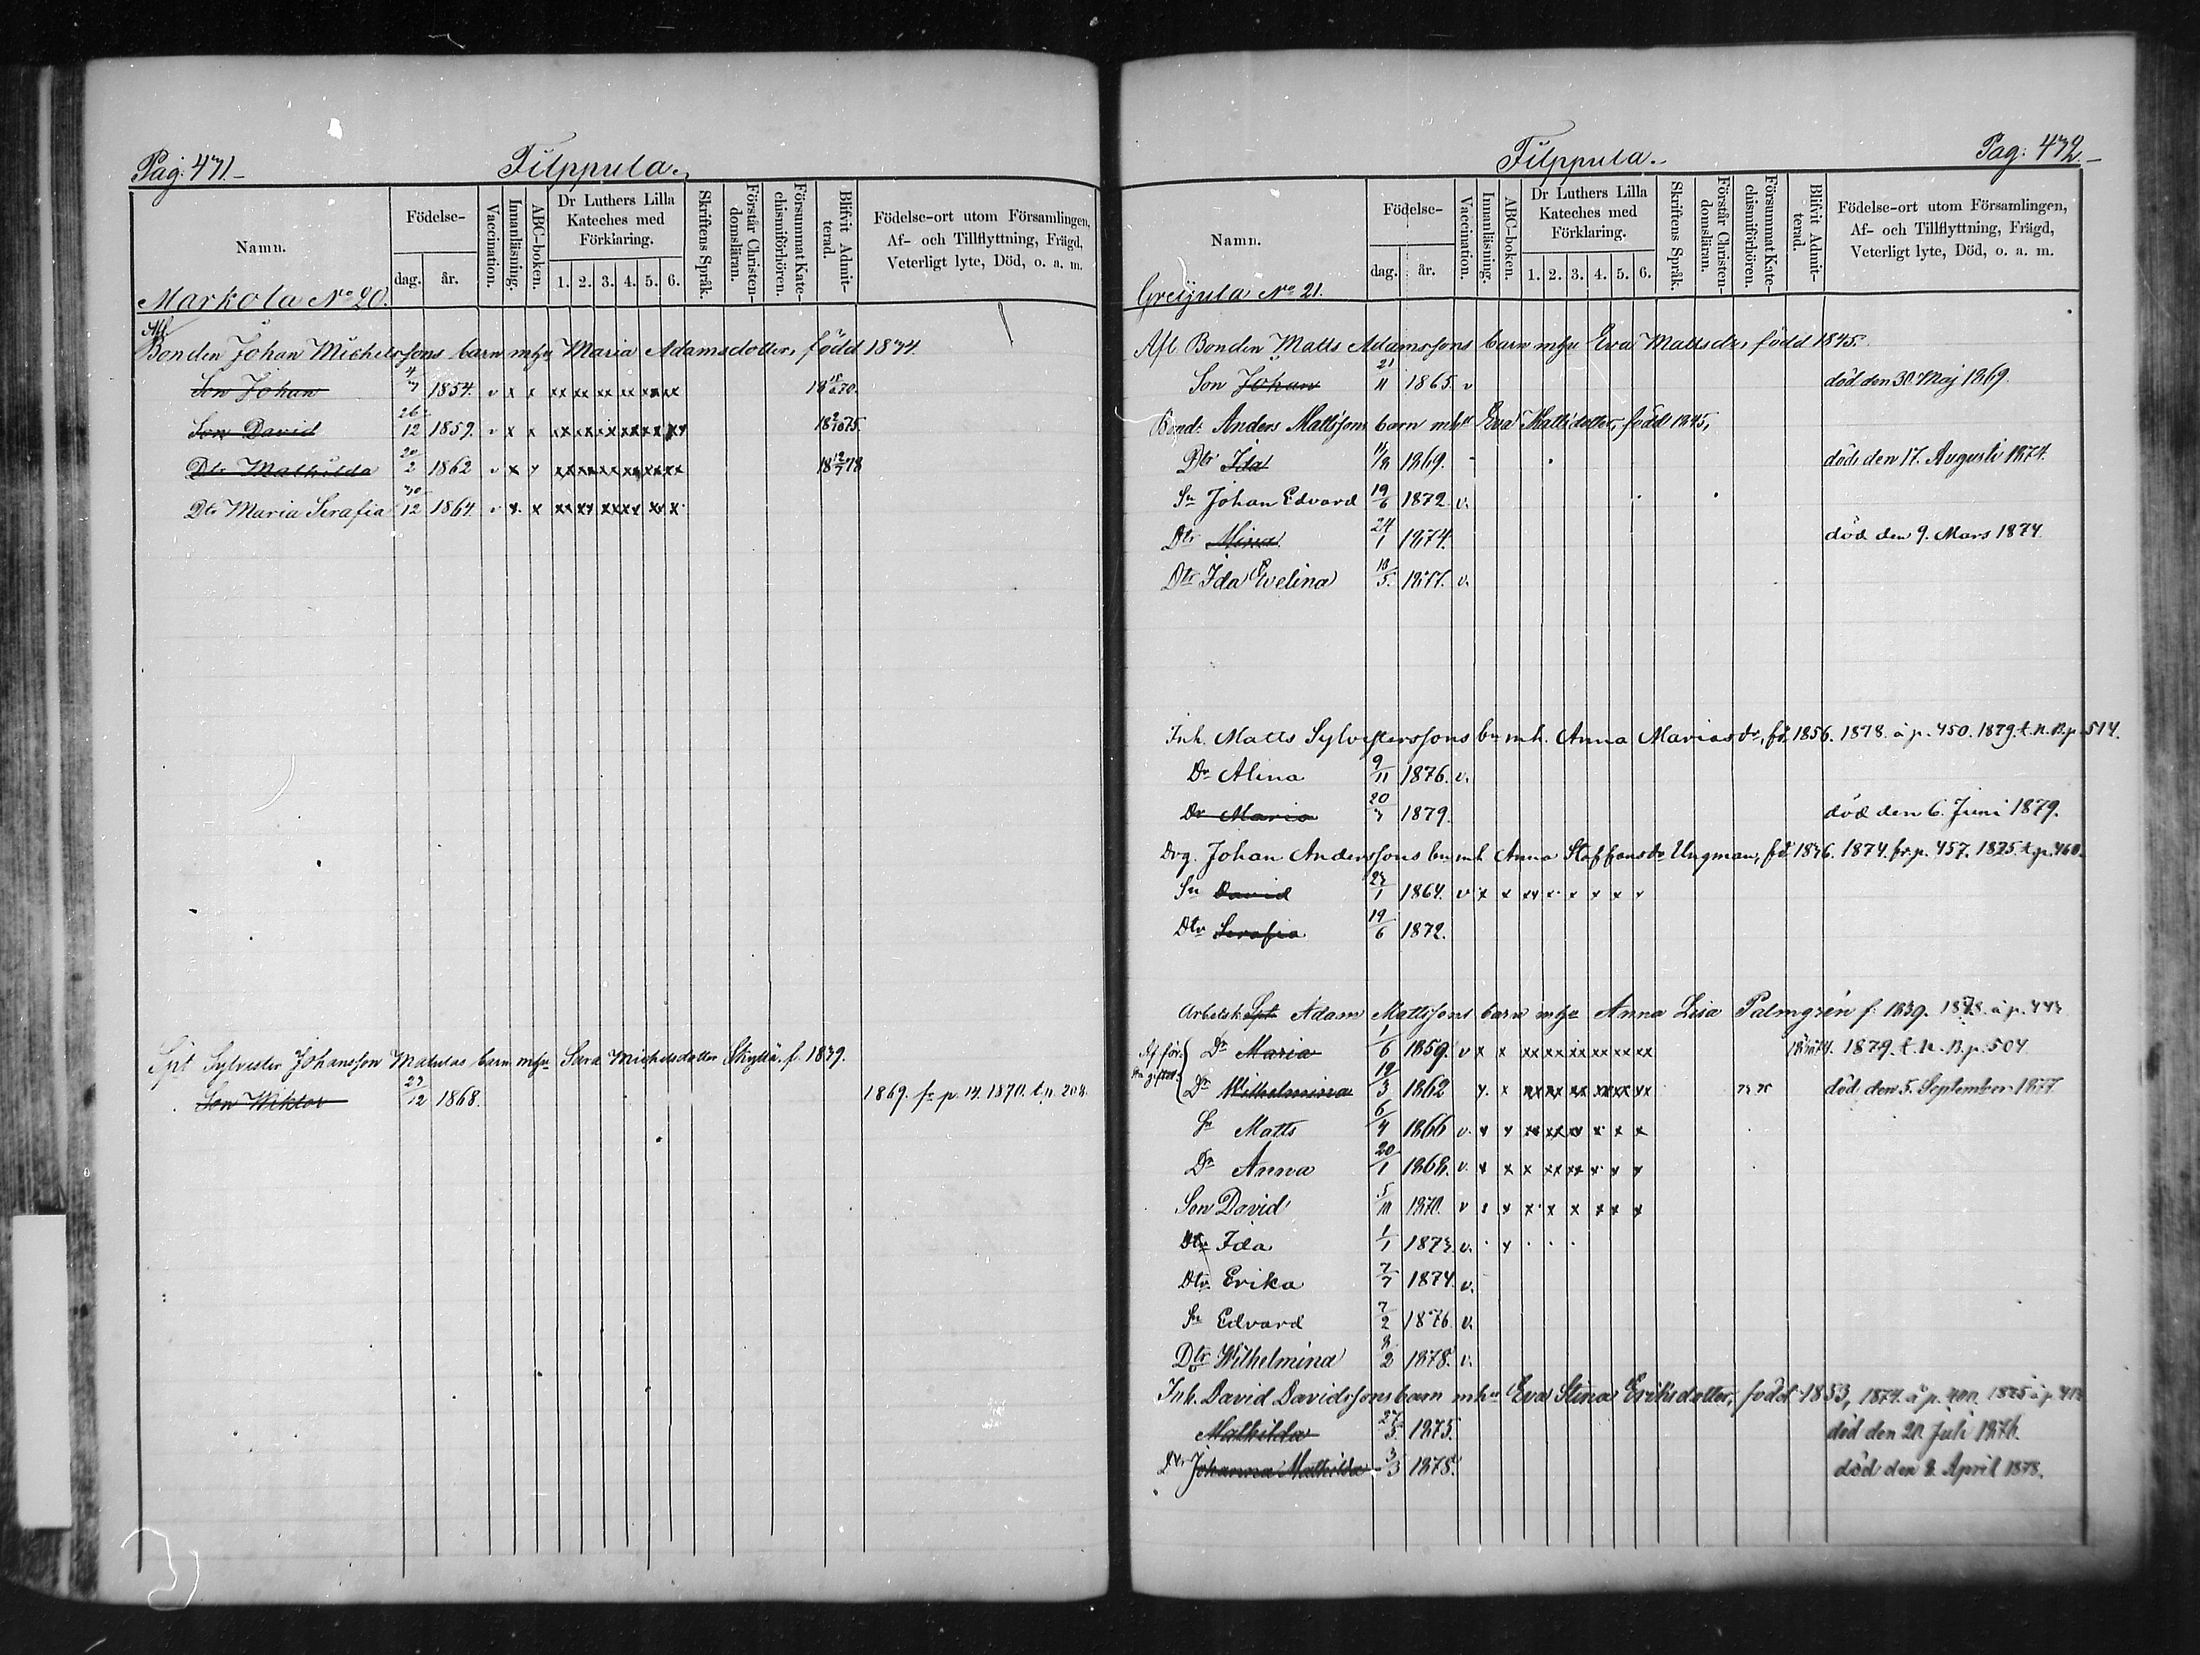 Pag: 471.
Filppula.
Namn.
Födelse-
dag. år.
Vaccination.
Innanläsning.
ABC-boken.
Dr Luthers Lilla Kateches med Förklaring.
1. 2. 3. 4. 5. 6.
Skriftens Språk.
Förstår Christendomsläran.
Försummat Katechismiförhören.
Blifvit Admitterad.
Födelse-ort utom Församlingen,
Af- och Tillflyttning, Frägd,
Veterligt lyte, Död, o. a. m.
Markola No 20.
Afl.
Bonden Johan Michelssons barn m hu Maria Adamsdotter, född 1834.
Son Johan 4/7 1854. v x x xx xx xx xx xx xx
Son David 26/12 1859. v x x xx xx xx xx xx xx 18 2/10 75.
Dtr Mathilda 20/2 1862 v x x xx xx xx xx xx xx 18 12/7 78
Dtr Maria Serafia 30/12 1864. v x. x xx xx xx xx xx x.
Spt Sylvester Johansson Matulas barn m hu Sara Michelsdotter f. 1839.
Son Wiktor 23/12 1868. 1869. fr p. 14. 1870. t. p. 208.
Pag: 472
Filppula.
Namn.
Födelse-
dag. år.
Vaccination.
Innanläsning.
ABC-boken.
Dr Luthers Lilla Kateches med Förklaring.
1. 2. 3. 4. 5. 6.
Skriftens Språk.
Förstår Christendomsläran.
Försummat Katechismiförhören.
Blifvit Admitterad.
Födelse-ort utom Församlingen,
Af- och Tillflyttning, Frägd,
Veterligt lyte, Död, o. a. m.
Greijula No 21.
Afl Bonden Matts Adamssons barn m hu Eva Mattsdr, född 1845.
Son Johan 21/11 1865. v död den 30. Maj 1869.
Bond: Anders Mattssons barn m hu Eva Mattsdotter, född 1845,
Dtr Ida 11/8 1869. - död den 17. Augusti 1874.
Sn Johan Edvard 19/6 1872 v.
Dtr Mina 24/1 1874. död den 9. Mars 1874.
Dtr Ida Evelina 18/5. 1877. v.
Inh. Matts Sylvesterssons bn m h. Anna Mariasdr, fd. 1856. 1878. å p. 450. 1879. t. N. B. p 514.
Dr Alina 9/11 1876. v.
Dr Maria 20/3 1879. död den 6. Juni 1879.
Drg. Johan Anderssons bn m h Anna Staffansdr Ungman, fd. 1836. 1874. fr. p. 457. 1875. t. p. 460.
Sn David 23/1 1864. v x x xx x x x x x
Dtr Serafia 19/6 1872.
Arbetsk. Spt Adam Mattssons barn m hu Anna Lisa Palmgrén f. 1839. 1878. å p. 443
Dr Maria 1/6 1859. v x x xx xx xx xx xx xx 1879. t. N. B. p. 504.
Dr Wilhelmina 19/3 1862 x. x xx xx xx xx xx xx död den 5. September 1877
Sn Matts 6/4 1866 v. x x xx xx xx x x x
Dr Anna 20/1 1868. v. x x x xx xx x x x
Son David 5/11 1870. v x x x x x x x x
Dtr Ida 1/1 1873 v. . x . . .
Dtr Erika 7/7 1874. v.
Sn Edvard 7/2 1876. v.
Dtr Wilhelmina 8/2 1878. v.
Inh. David Davidssons barn m hu Eva Stina Eriksdotter, född 1853, 1874. å p. 1875 å p.
Mathilda 27/3. 1875. död den 20. Juli 1876.
Dtr Johanna Mathilda 3/3 1878. död den 8. April 1878.